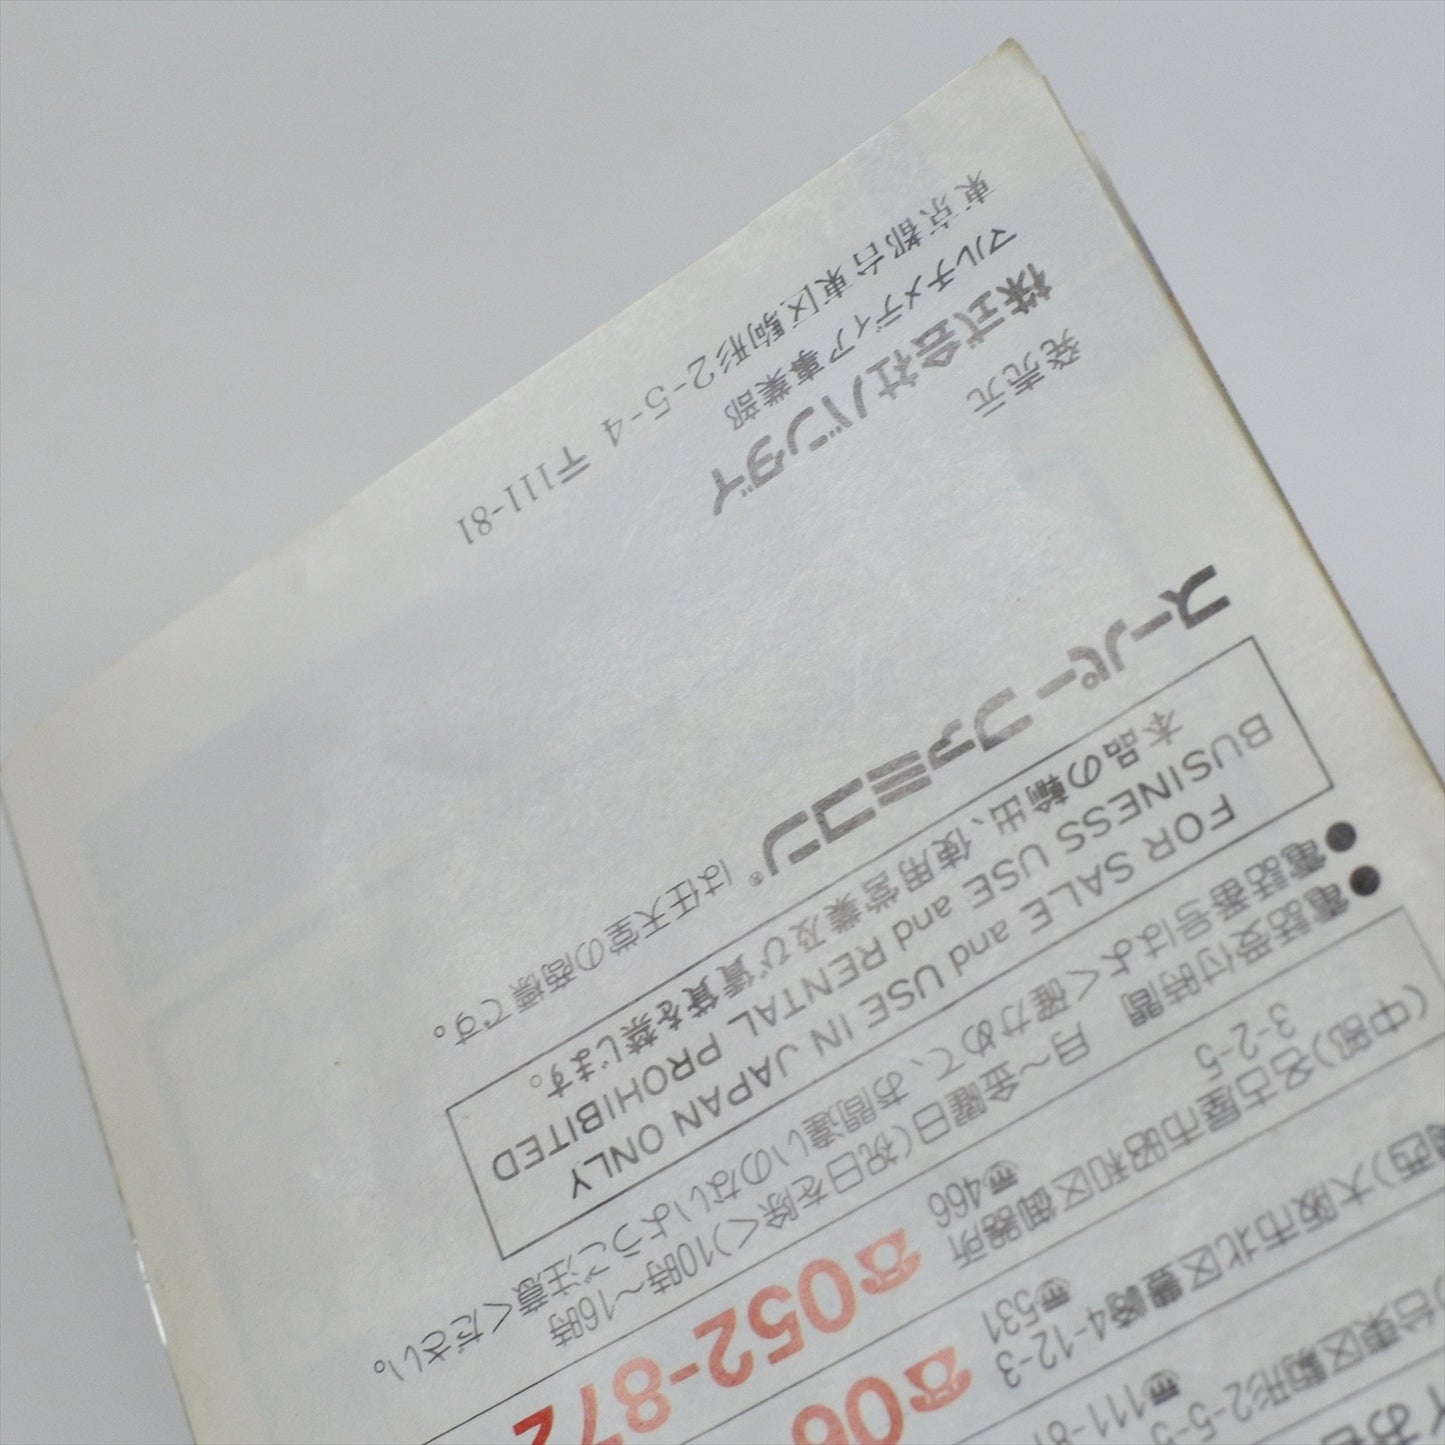 お
台東区駒形2-5-5
〒111-81
西)大阪市北区豊崎4-12-3
〒531
☎06
(中部)名古屋市昭和区御器所
3-2-5
〒466
☎052-872
●電話受付時間 月〜金曜日(祝日を除く)10時〜16時
●電話番号はよく確かめて、お間違いのないようご注意ください。
FOR SALE and USE IN JAPAN ONLY
BUSINESS USE and RENTAL PROHIBITED
本品の輸出、使用営業及び賃貸を禁じます。
スーパーファミコン® は任天堂の商標です。
発売元
株式会社バンダイ
マルチメディア事業部
東京都台東区駒形2-5-4 〒111-81